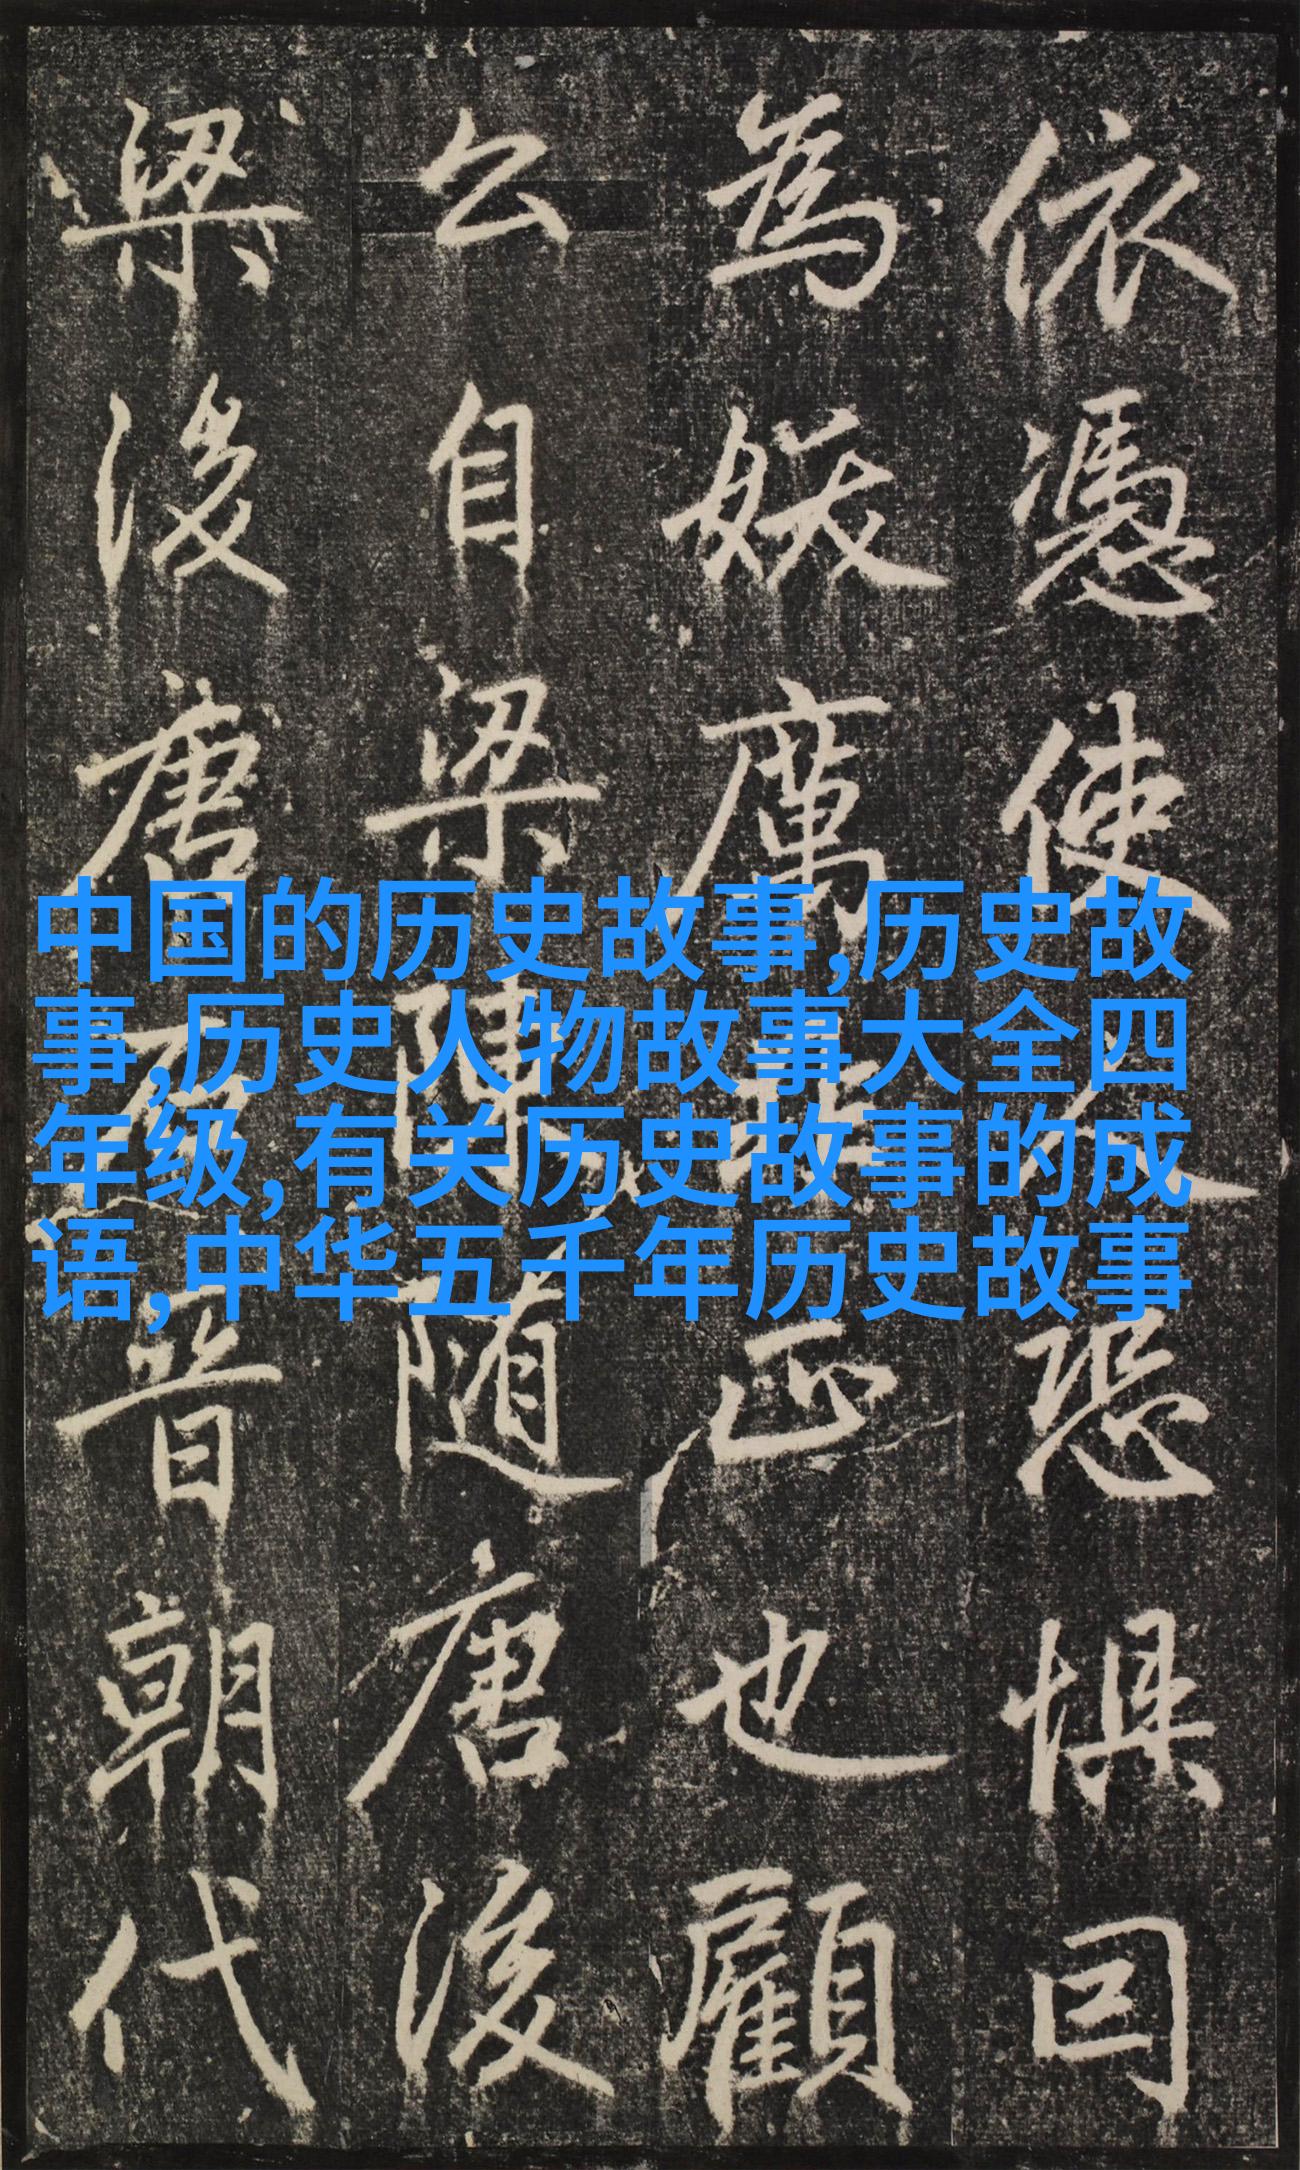 依憑使人恐懼囙
為妖厲正也顧
公自梁陳隨唐後
梁後唐石晉朝代
中国的历史故事,历史故
事,历史人物故事大全四
年级,有关历史故事的成
语,中华五千年历史故事